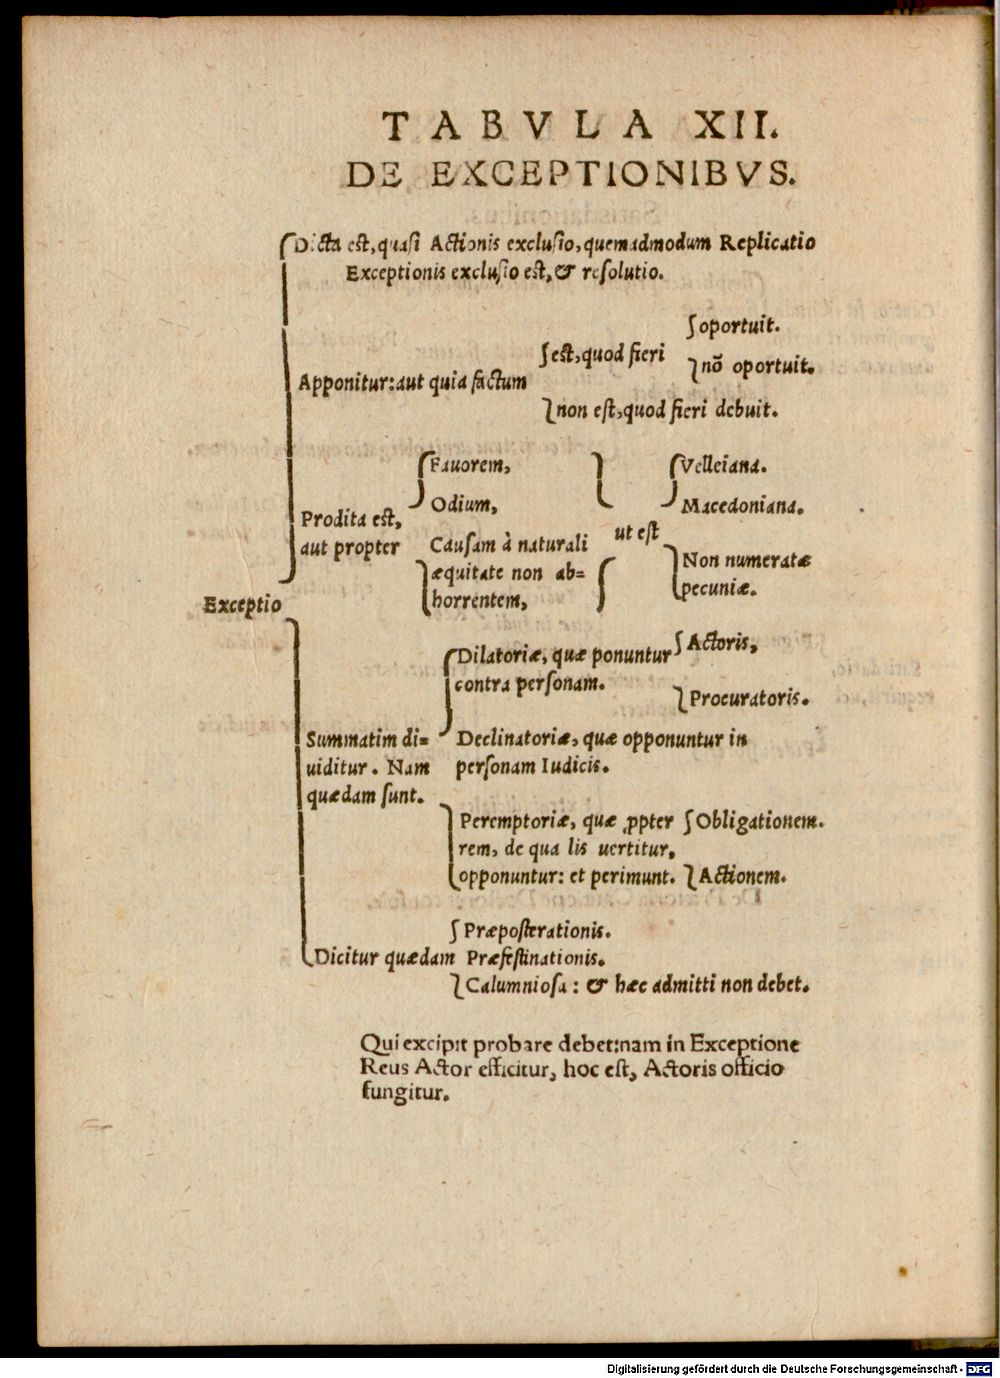 TABVLA XII.
DE EXCEPTIONIBVS.
Dicta est, quasi Actionis exclusio, quemadmodum Replicatio
Exceptionis exclusio est, & resolutio.
Apponitur: aut quia factum
est, quod fieri
oportuit.
nō oportuit.
non est, quod fieri debuit.
Prodita est,
aut propter
Fauorem,
Odium,
Causam à naturali
æquitate non ab=
horrentem,
ut est
Velleiana.
Macedoniana.
Non numeratæ
pecuniæ.
Exceptio
Summatim di=
uiditur. Nam
quædam sunt.
Dilatoriæ, quæ ponuntur
contra personam.
Actoris,
Procuratoris.
Declinatoriæ, quæ opponuntur in
personam Iudicis.
Peremptoriæ, quæ ꝓpter
rem, de qua lis uertitur,
opponuntur: et perimunt.
Obligationem.
Actionem.
Dicitur quædam
Præposterationis.
Præfestinationis.
Calumniosa: & hæc admitti non debet.
Qui excipit probare debet: nam in Exceptione
Reus Actor efficitur, hoc est, Actoris officio
fungitur.
Digitalisierung gefördert durch die Deutsche Forschungsgemeinschaft - DFG